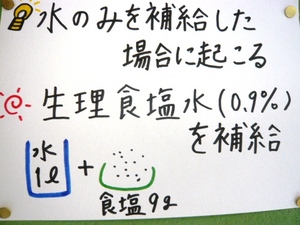 水のみを補給した
場合に起こる
生理食塩水(0.9%)
を補給
水
1ℓ
+
食塩9g